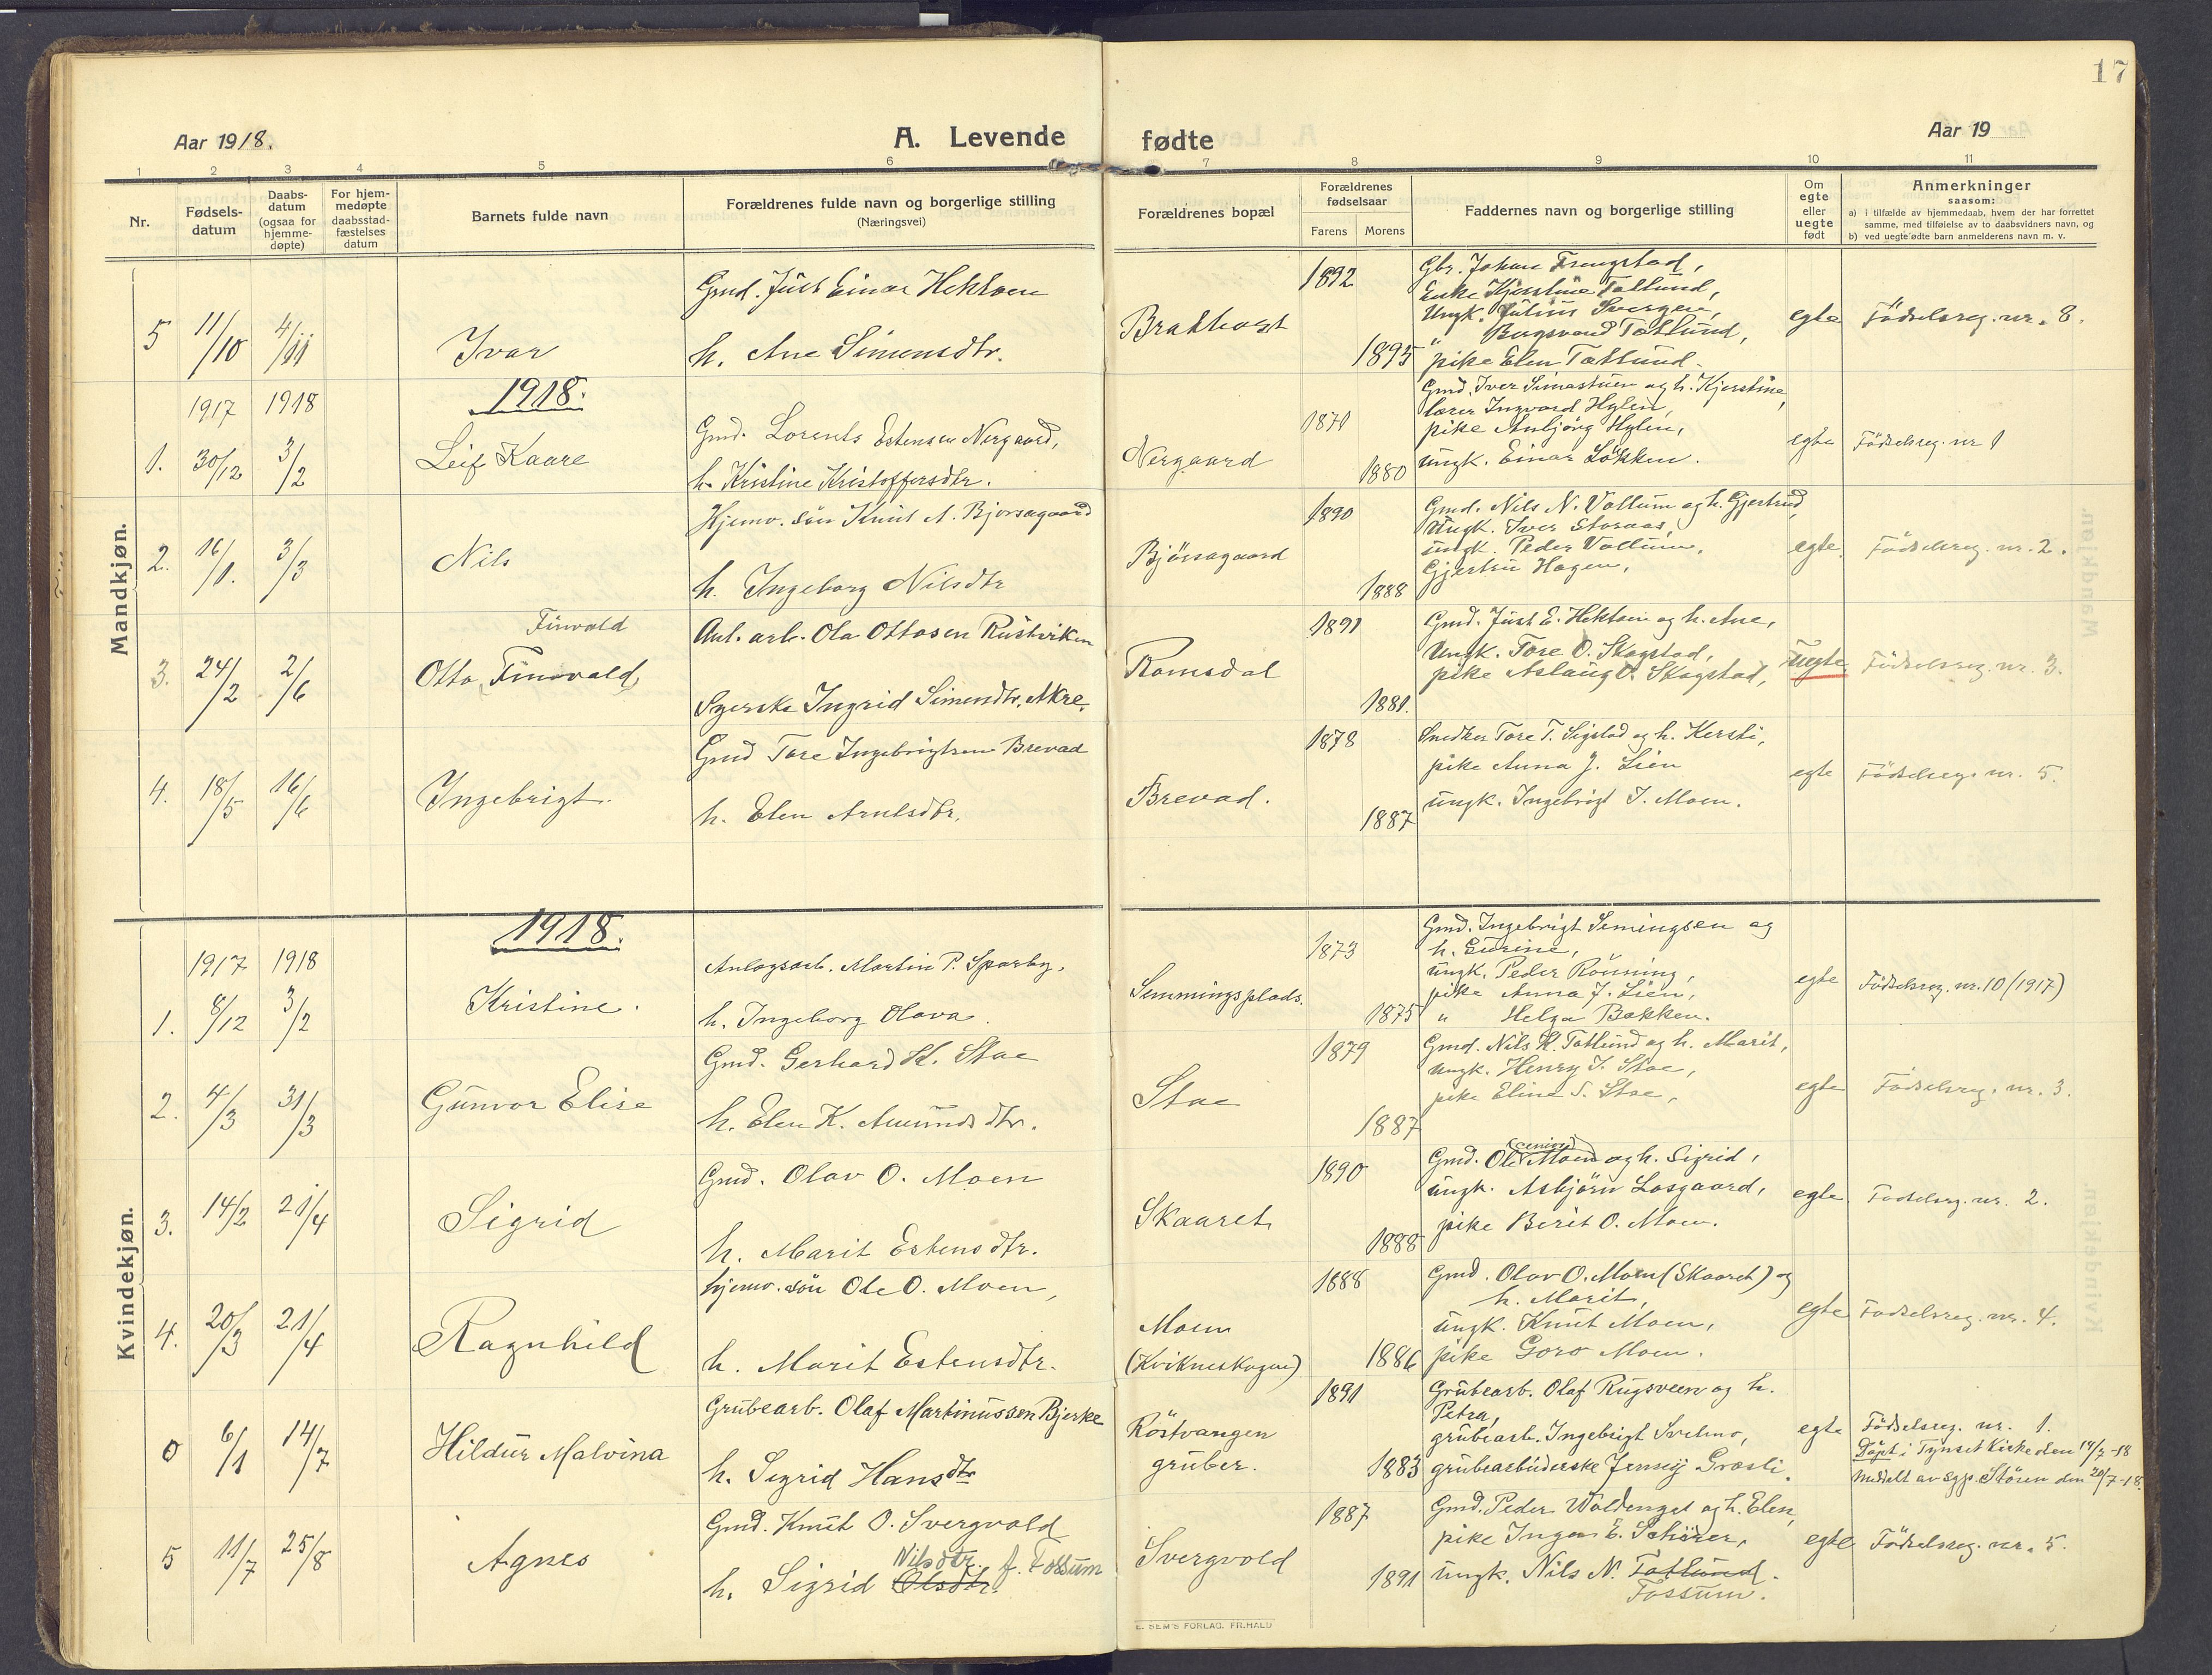 17
Aar 1918.
A. Levende fødte
Aar 19
1 2 3 4 5 6 7 8 9 10 11
Nr.
Fødsels-
datum
Daabs-
datum
(ogsaa for
hjemme-
døpte)
For hjem-
medøpte
daabsstad-
fæstelses
datum
Barnets fulde navn
Forældrenes fulde navn og borgerlige stilling
(Næringsvei)
Forældrenes bopæl
Forældrenes
fødselsaar
Farens
Morens
Faddernes navn og borgerlige stilling
Om
egte
eller
uegte
født
Anmerkninger
saasom:
a) i tilfælde av hjemmedaab, hvem der har forrettet
samme, med tilføielse av to daabsvidners navn, og
b) ved uegte fødte barn anmelderens navn m. v.
Mandkjøn.
5 11/10 4/11 Ivar
Gmd. Just Einar Hektoen
h. Ane Simensdtr.
Brakhost
1892
1895
Gbr. Johan Trengstad,
Enke Kjerstine Tallund,
Ungk. Julius Svergen,
" Bugsvend Tatlund,
pike Elen Tatlund.
egte
Födselsreg. nr. 8.
1918.
1917 1918
1. 30/12 3/2 Leif Kaare
Gmd. Lorents Estensen Nergaard,
h. Kristine Kristoffersdtr.
Nergaard
1871
1880
Gmd. Iver Simastuen og h. Kjerstine,
lærer Ingvard Hylen,
pike Anbjörg Hylen,
ungk. Einar Lökken.
egte
Födselsreg. nr 1
2. 16/1. 3/3 Nils
Hjemv. sön Knut A. Bjørsagaard
h. Ingeborg Nilsdtr
Björsagaard
1890
1888
Gmd. Nils N. Vollum og h. Gjertrud,
Ungk. Iver Storaas,
ungk. Peder Vollum,
Gjertru Hagen,
egte.
Födselsreg. nr. 2.
3. 24/2 2/6
Finvald
Otto Finovald,
Anl. arb. Ola Ottosen Rustviken
Syerske Ingrid Simensdtr. Akre.
Romsdal
1891
1881.
Gmd. Just E. Hektoen og h. Ane,
Ungk. Tore O. Skogstad,
pike Aslaug O. Skogstad,
uegte
Födselsreg. nr. 3.
4. 18/5 16/6 Ingebrigt.
Gmd Tore Ingebrigtsen Brevad
h. Elen Arntsdtr.
Brevad.
1878
1887
Snedker Tore T. Sigstad og h. Kersti,
pike Anna J. Lien
ungk. Ingebrigt I. Moen.
egte
Födselsreg. nr. 5.
Kvindekjøn.
1918.
1917 1918
1. 8/12 3/2 Kristine.
Anlægsarb. Martin P. Sparby,
h. Ingeborg Olava.
Semmingsplads.
1873
1875
Gmd. Ingebrigt Semingsen og
h. Eurine,
ungk. Peder Rönning,
pike Anna J. Lien,
" Helga Bakken.
egte
Födselsreg. nr. 10 (1917)
2. 4/3 31/3 Gunvor Elise
Gmd. Gerhard H. Stae
h. Elen K. Amundsdtr.
Stae
1879
1887
Gmd. Nils H. Tatlund og h. Marit,
Ungk. Henry J. Stae,
pike Eline S. Stae,
egte
Födselsreg. nr. 3.
3. 14/2 21/4 Sigrid
Gmd. Olav O. Moen
h. Marit Estensdtr.
Skaaret
1890
1888
(senior)
Gmd. Ole Moen og h. Sigrid,
ungk. Asbjörn Losgaard,
pike Berit O. Moen.
egte
Födselsreg. nr. 2.
4. 20/3 21/4 Ragnhild
hjemv. sön Ole O. Moen,
h. Marit Estensdtr.
Moen
(Kvikneskogen)
1888
1886
Gmd. Olav O. Moen (Skaaret) og
h. Marit,
ungk. Knut Moen,
pike Goro Moen.
egte
Födselsreg. nr. 4.
0 6/1 14/7 Hildur Malvina
Grubearb. Olaf Martinussen Bjerke
h. Sigrid Hansdtr
Röstvangen
gruber.
1891
1883
Grubearb. Olaf Rugsveen og h.
Petra,
grubearb. Ingebrigt Svelmo,
grubearbiderske Jenny Græsli.
egte
Födselsreg. nr. 1.
Döpt i Tynset Kirke den 14/7-18
Meddelt av sgp. Stören den 20/7-18.
5 11/7 25/8 Agnes
Gmd. Knut O. Svergvold
Nilsdtr. f. Fossum
h. Sigrid Olsdtr.
Svergvold
1887
1891
Gmd. Peder Woldenget og h. Elen,
pike Inga E. Schärer,
ungk. Nils N. Tatlund.
Fossum.
egte
Födselsreg. nr. 5.
E. SEM'S FORLAG. FR.HALD